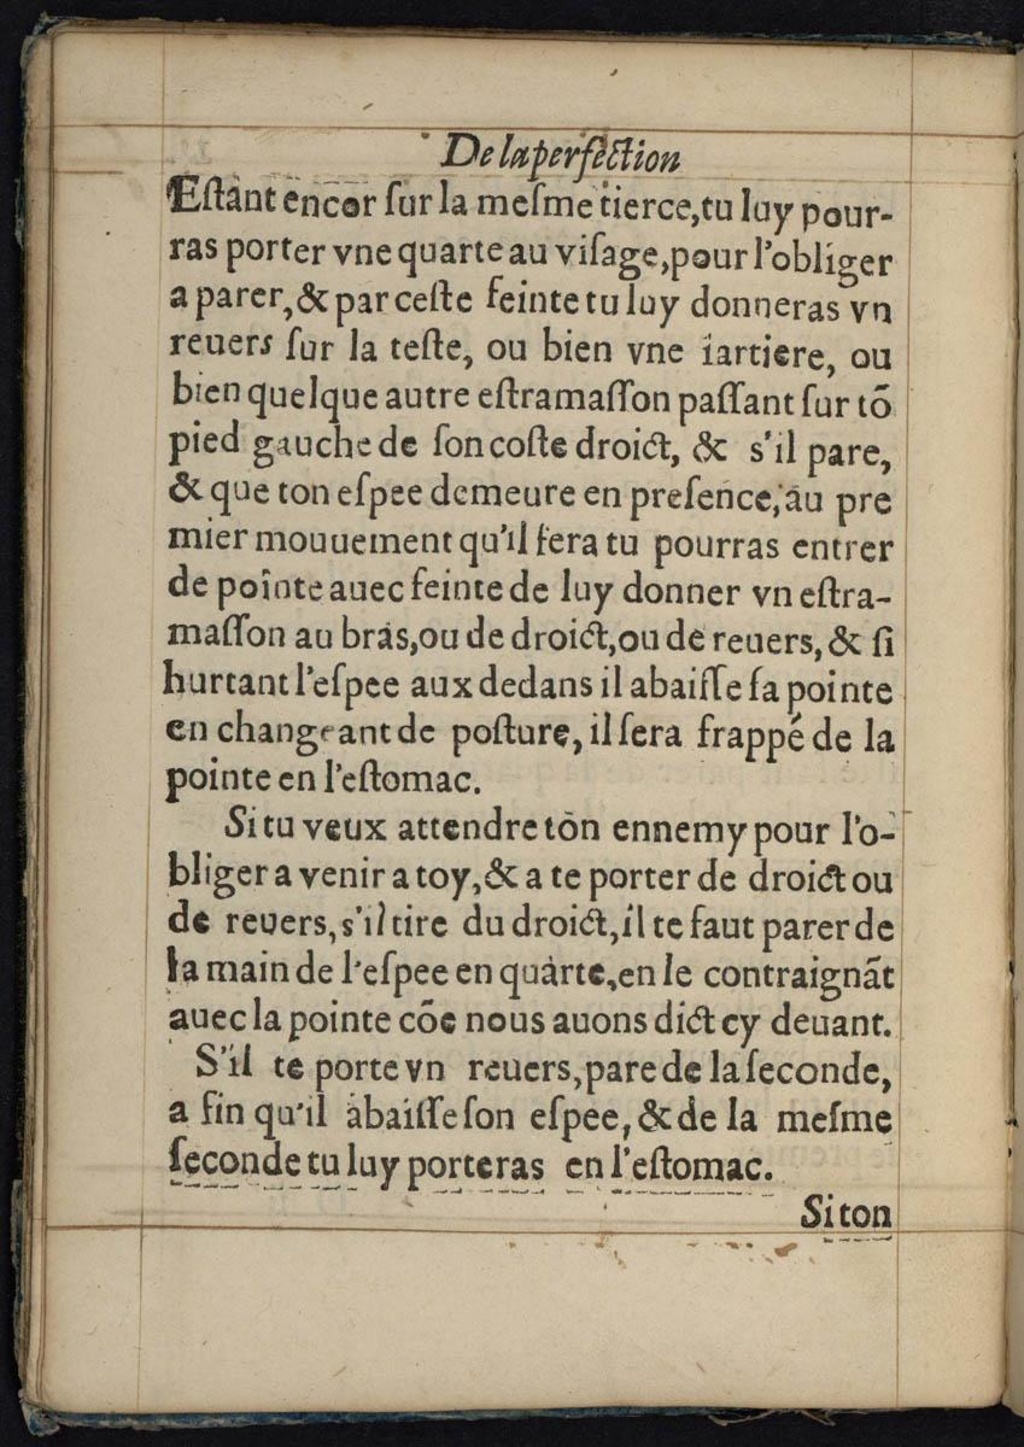 De la perfection
Eſtant encor ſur la meſme tierce, tu luy pour-
ras porter vne quarte au viſage, pour l'obliger
a parer, & par ceſte feinte tu luy donneras vn
reuers ſur la teſte, ou bien vne iartiere, ou
bien quelque autre eſtramaſſon paſſant ſur tõ
pied gauche de ſon coſte droict, & s'il pare,
& que ton eſpee demeure en preſence, au pre
mier mouuement qu'il fera tu pourras entrer
de pointe auec feinte de luy donner vn eſtra-
maſſon au bras, ou de droict, ou de reuers, & ſi
hurtant l'eſpee aux dedans il abaiſſe ſa pointe
en changeant de poſture, il ſera frappé de la
pointe en l'eſtomac.
Si tu veux attendre ton ennemy pour l'o-
bliger a venir a toy, & a te porter de droict ou
de reuers, s'il tire du droict, il te faut parer de
la main de l'eſpee en quarte, en le contraignãt
auec la pointe cõe nous auons dict cy deuant.
S'il te porte vn reuers, pare de la ſeconde,
a fin qu'il abaiſſe ſon eſpee, & de la meſme
ſeconde tu luy porteras en l'eſtomac.
Si ton